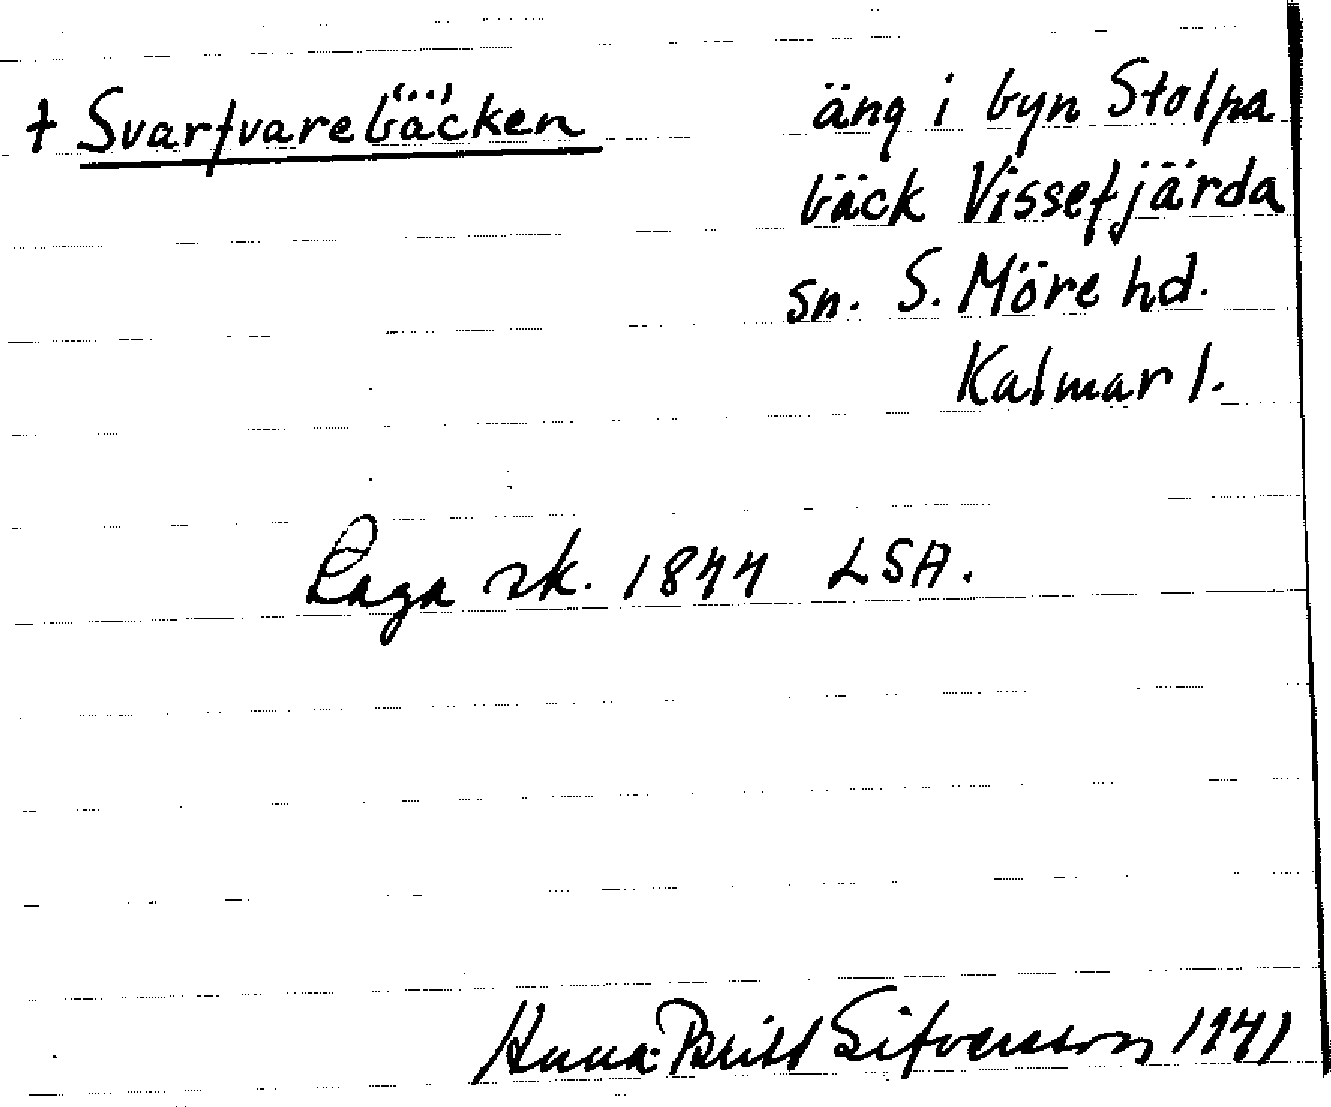 † Svarfvarebäcken äng i byn Stolpa
bäck Vissefjärda
sn. S. Möre hd.
Kalmar l.
Laga sk. 1844 LSA.
Anna-Britt Sifversson 1941